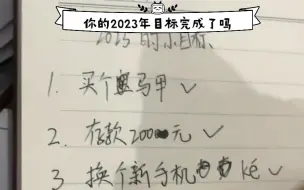 你的2023年目标完成了吗
2023的小目标
1. 买个黑马甲 ✓
2. 存款2000元 ✓
3 换个新手机 ké ✓